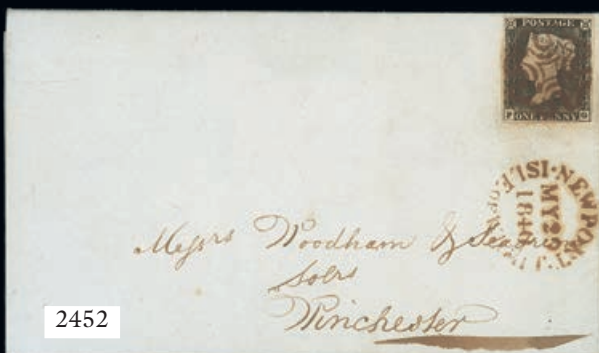 POSTAGE
ONE PENNY
NEWPORT
ISLE OF WIGHT
MY 2
1840
Messrs Woodham &
Solrs
Winchester
2452